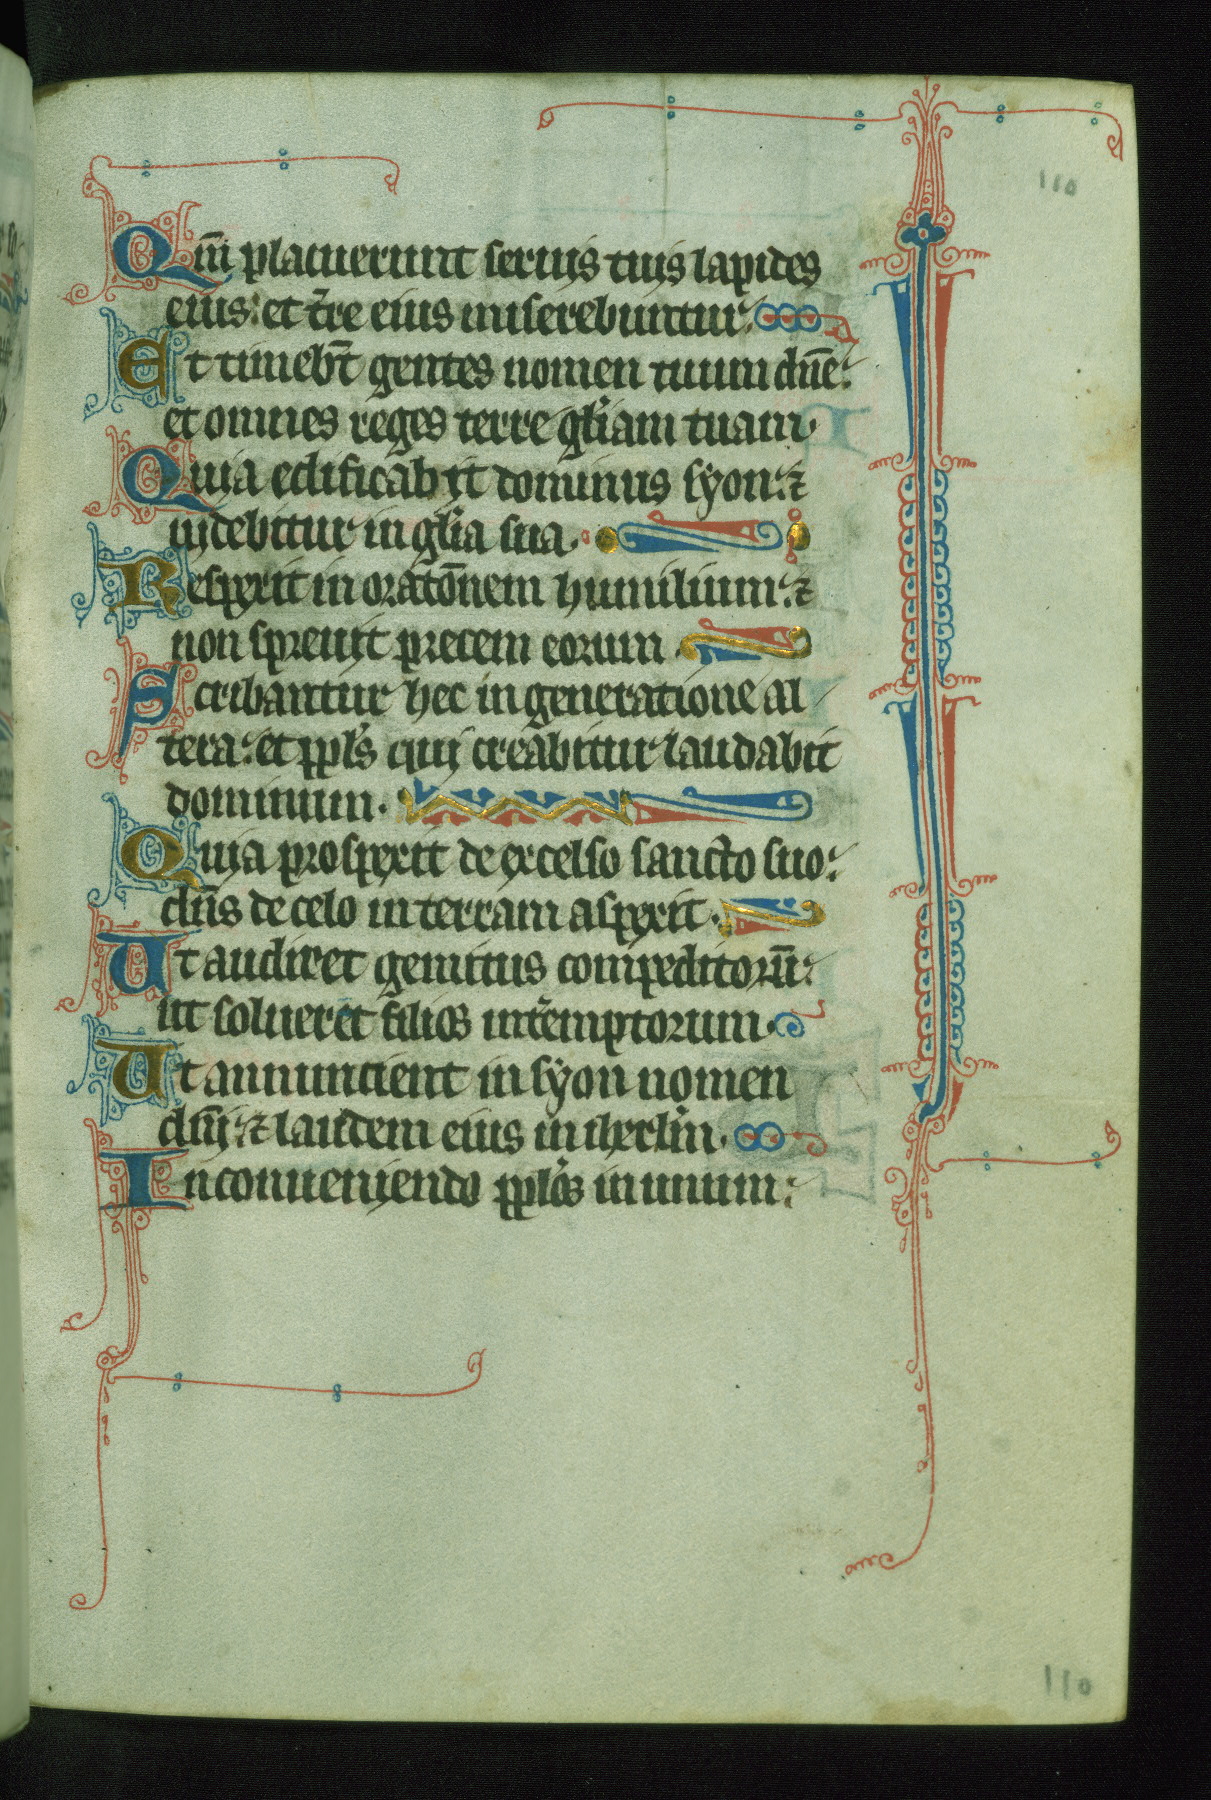 110
Qm̄ placuerunt seruis tuis lapides
eius: et t̄re eius miserebuntur.
Et timeb̄t gentes nomen tuum dn̄e:
et omnes reges terre gl̄iam tuam.
Quia edificabit dominus syon: ⁊
uidebitur in gl̄ia sua.
Respexit in orat̄onem humilium: ⁊
non spreuit precem eorum.
Scribantur hec in generatione al
tera: et ppl̄s qui creabitur laudabit
dominum.
Quia prospexit de excelso sancto suo:
dn̄s de celo in terram aspexit.
Ut audiret gemitus compeditorū:
ut solueret filios int̄emptorum.
Ut annuncient in syon nomen
dn̄i: ⁊ laudem eius in iherl̄m.
In conueniendo ppl̄os in unum:
110